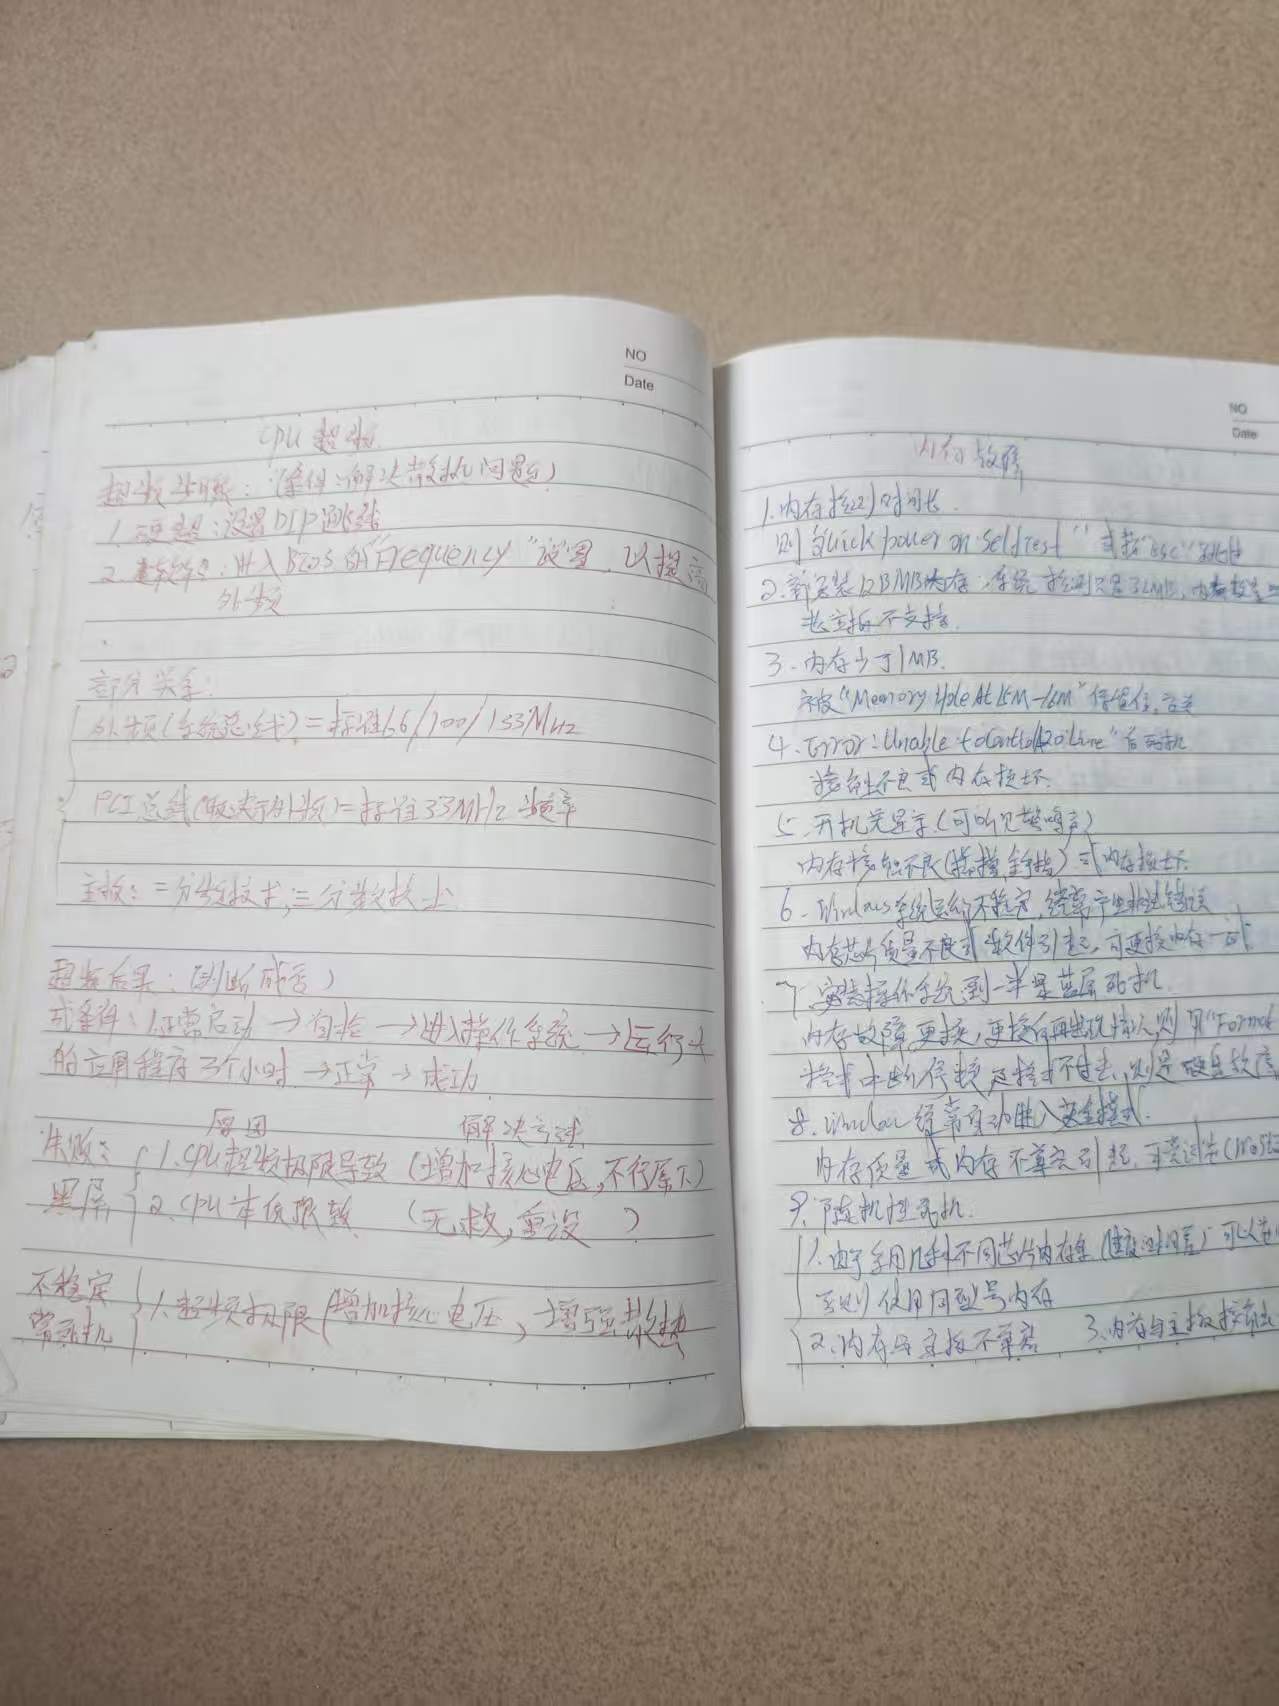 NO
Date
CPU 超频
超频步骤：（条件：解决散热问题）
1. 硬超：设置DIP跳线
2. 软超：进入BIOS的"Frequency"设置，以提高
外频
部分关系：
外频（系统总线）=标准66/100/133MHz
PCI总线（取决于外频）=标准33MHz 频率
主板：二分频技术，三分频技术
超频后果：（判断成否）
或条件：1.正常启动→自检→进入操作系统→运行大
的应用程序3个小时→正常→成功
原因 解决方法
失败： 1.CPU超频极限导致（增加核心电压，不行原下）
黑屏 2.CPU本质导致 （无救，重设 ）
不稳定
常死机 1.超频极限（增加核心电压，增强散热
NO
Date
内存故障
1.内存检测时间长.
则 Quick power on Self Test" 或按"ESC"
2.新安装128MB内存：系统检测只是32MB，内存
扩主板不支持.
3.内存少于1MB.
被"Memory Hole At 15M-16M"
4.Error：Unable to Control A20 Line"
接触不良或内存损坏.
5.开机无显示（可听见警鸣声）
内存接触不良（插槽,金手指）或内存损坏.
6.Windows系统运行不稳定，经常产生非法错误
内存芯片质量不良或软件引起，可更换内存一试
7.安装操作系统到一半是蓝屏死机.
内存故障,更换，更换后再出现 则用"Format
格式中断,停顿 格式不过去，则是硬盘故障
8.Windows经常自动进入安全模式.
内存质量或内存不兼容引起，
9.随机性死机.
1.由于采用几种不同芯片内存条 可以
否则使用同型号内存
2.内存与主板不兼容 3.内存与主板接触